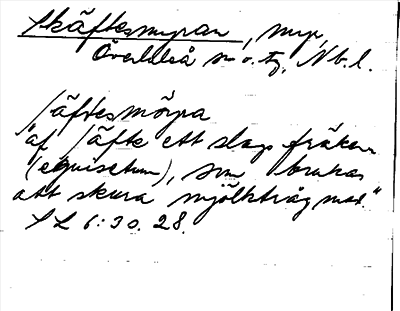 Skäftesmyran, myr,
Överluleå sn o. tg, Nb. l.
Säftesmörpa
"af Säfte ett slags fräken
(equisetum), som brukas
att skura mjölktråg med."
SL 6:30. 28.